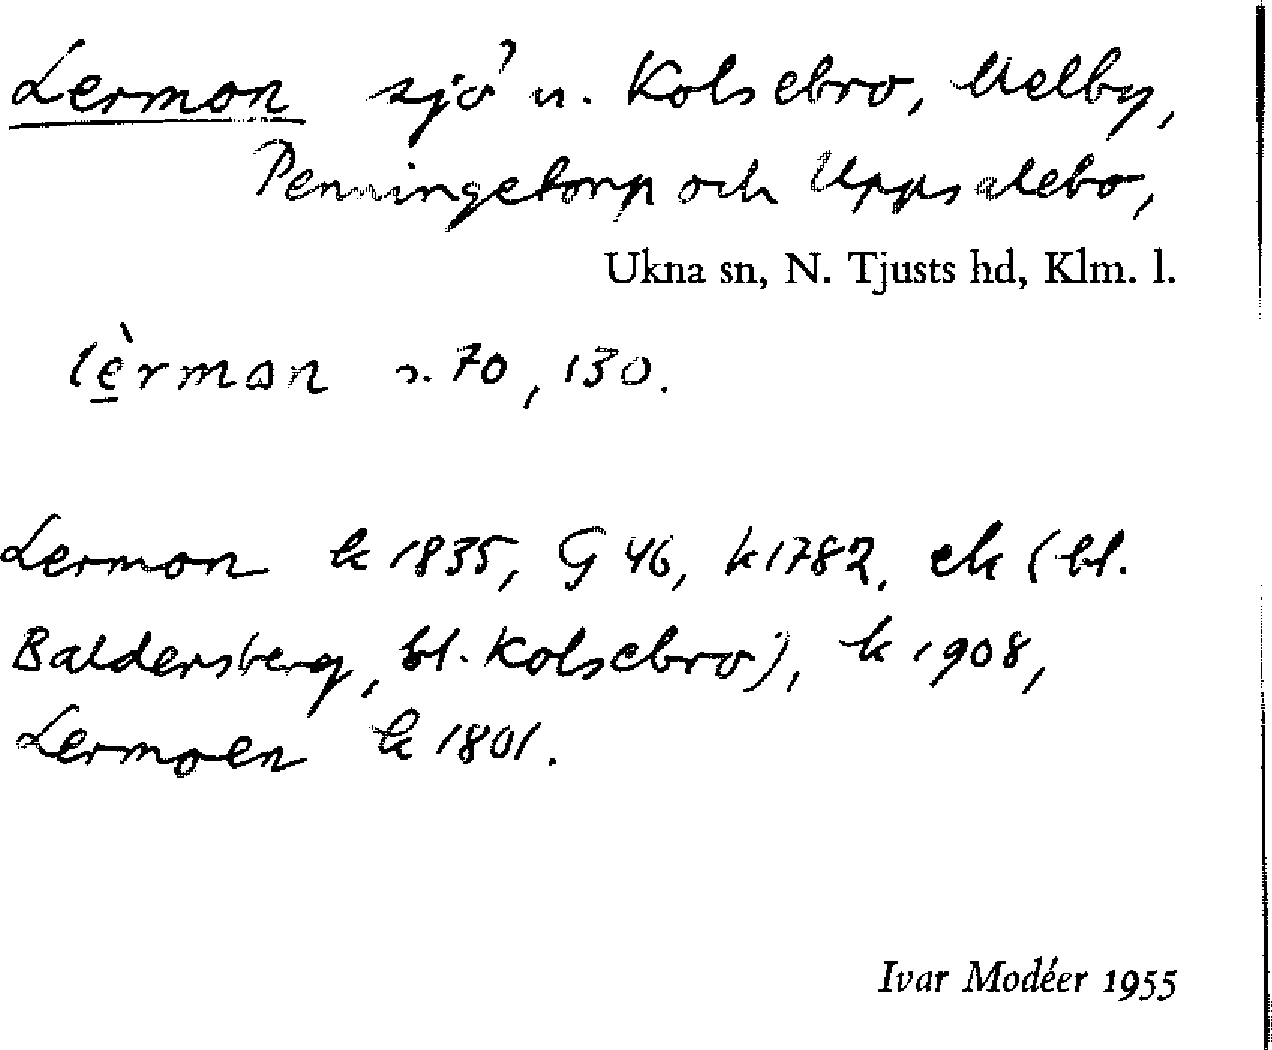 Lermon sjö u. Kolsebro, Melby,
Penningetorp och Uppsalebo,
Ukna sn, N. Tjusts hd, Klm. l.
lèrman s. 70, 130.
Lermon k 1835, G 46, k 1782, ek (bl.
Baldersberg, bl. Kolsebro), k 1908,
Lermoen k 1801.
Ivar Modéer 1955